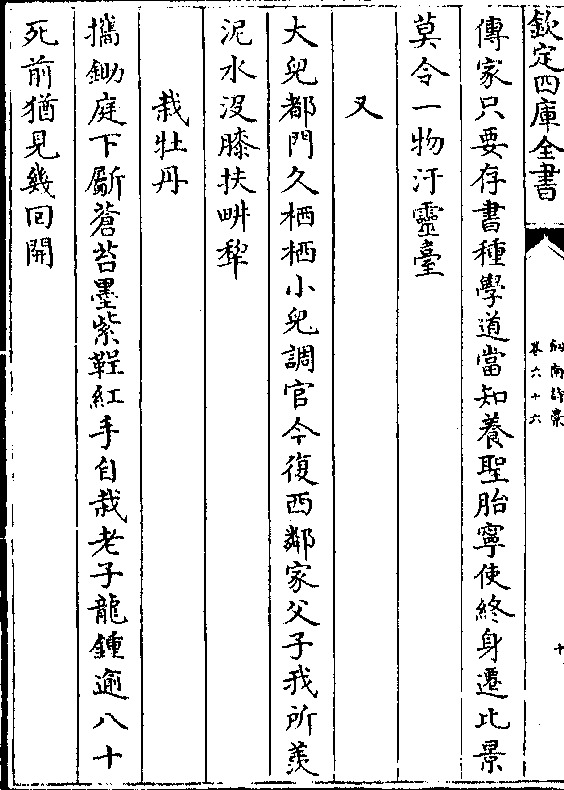 欽定四庫全書
劍南詩稾
卷六十六
十
傳家只要存書種學道當知養聖胎寧使終身遷比景
莫令一物汙靈臺
又
大兒都門久栖栖小兒調官今復西鄰家父子我所羨
泥水没膝扶畊犂
栽牡丹
攜鋤庭下斸蒼苔墨紫鞓紅手自栽老子龍鍾逾八十
死前猶見幾回開